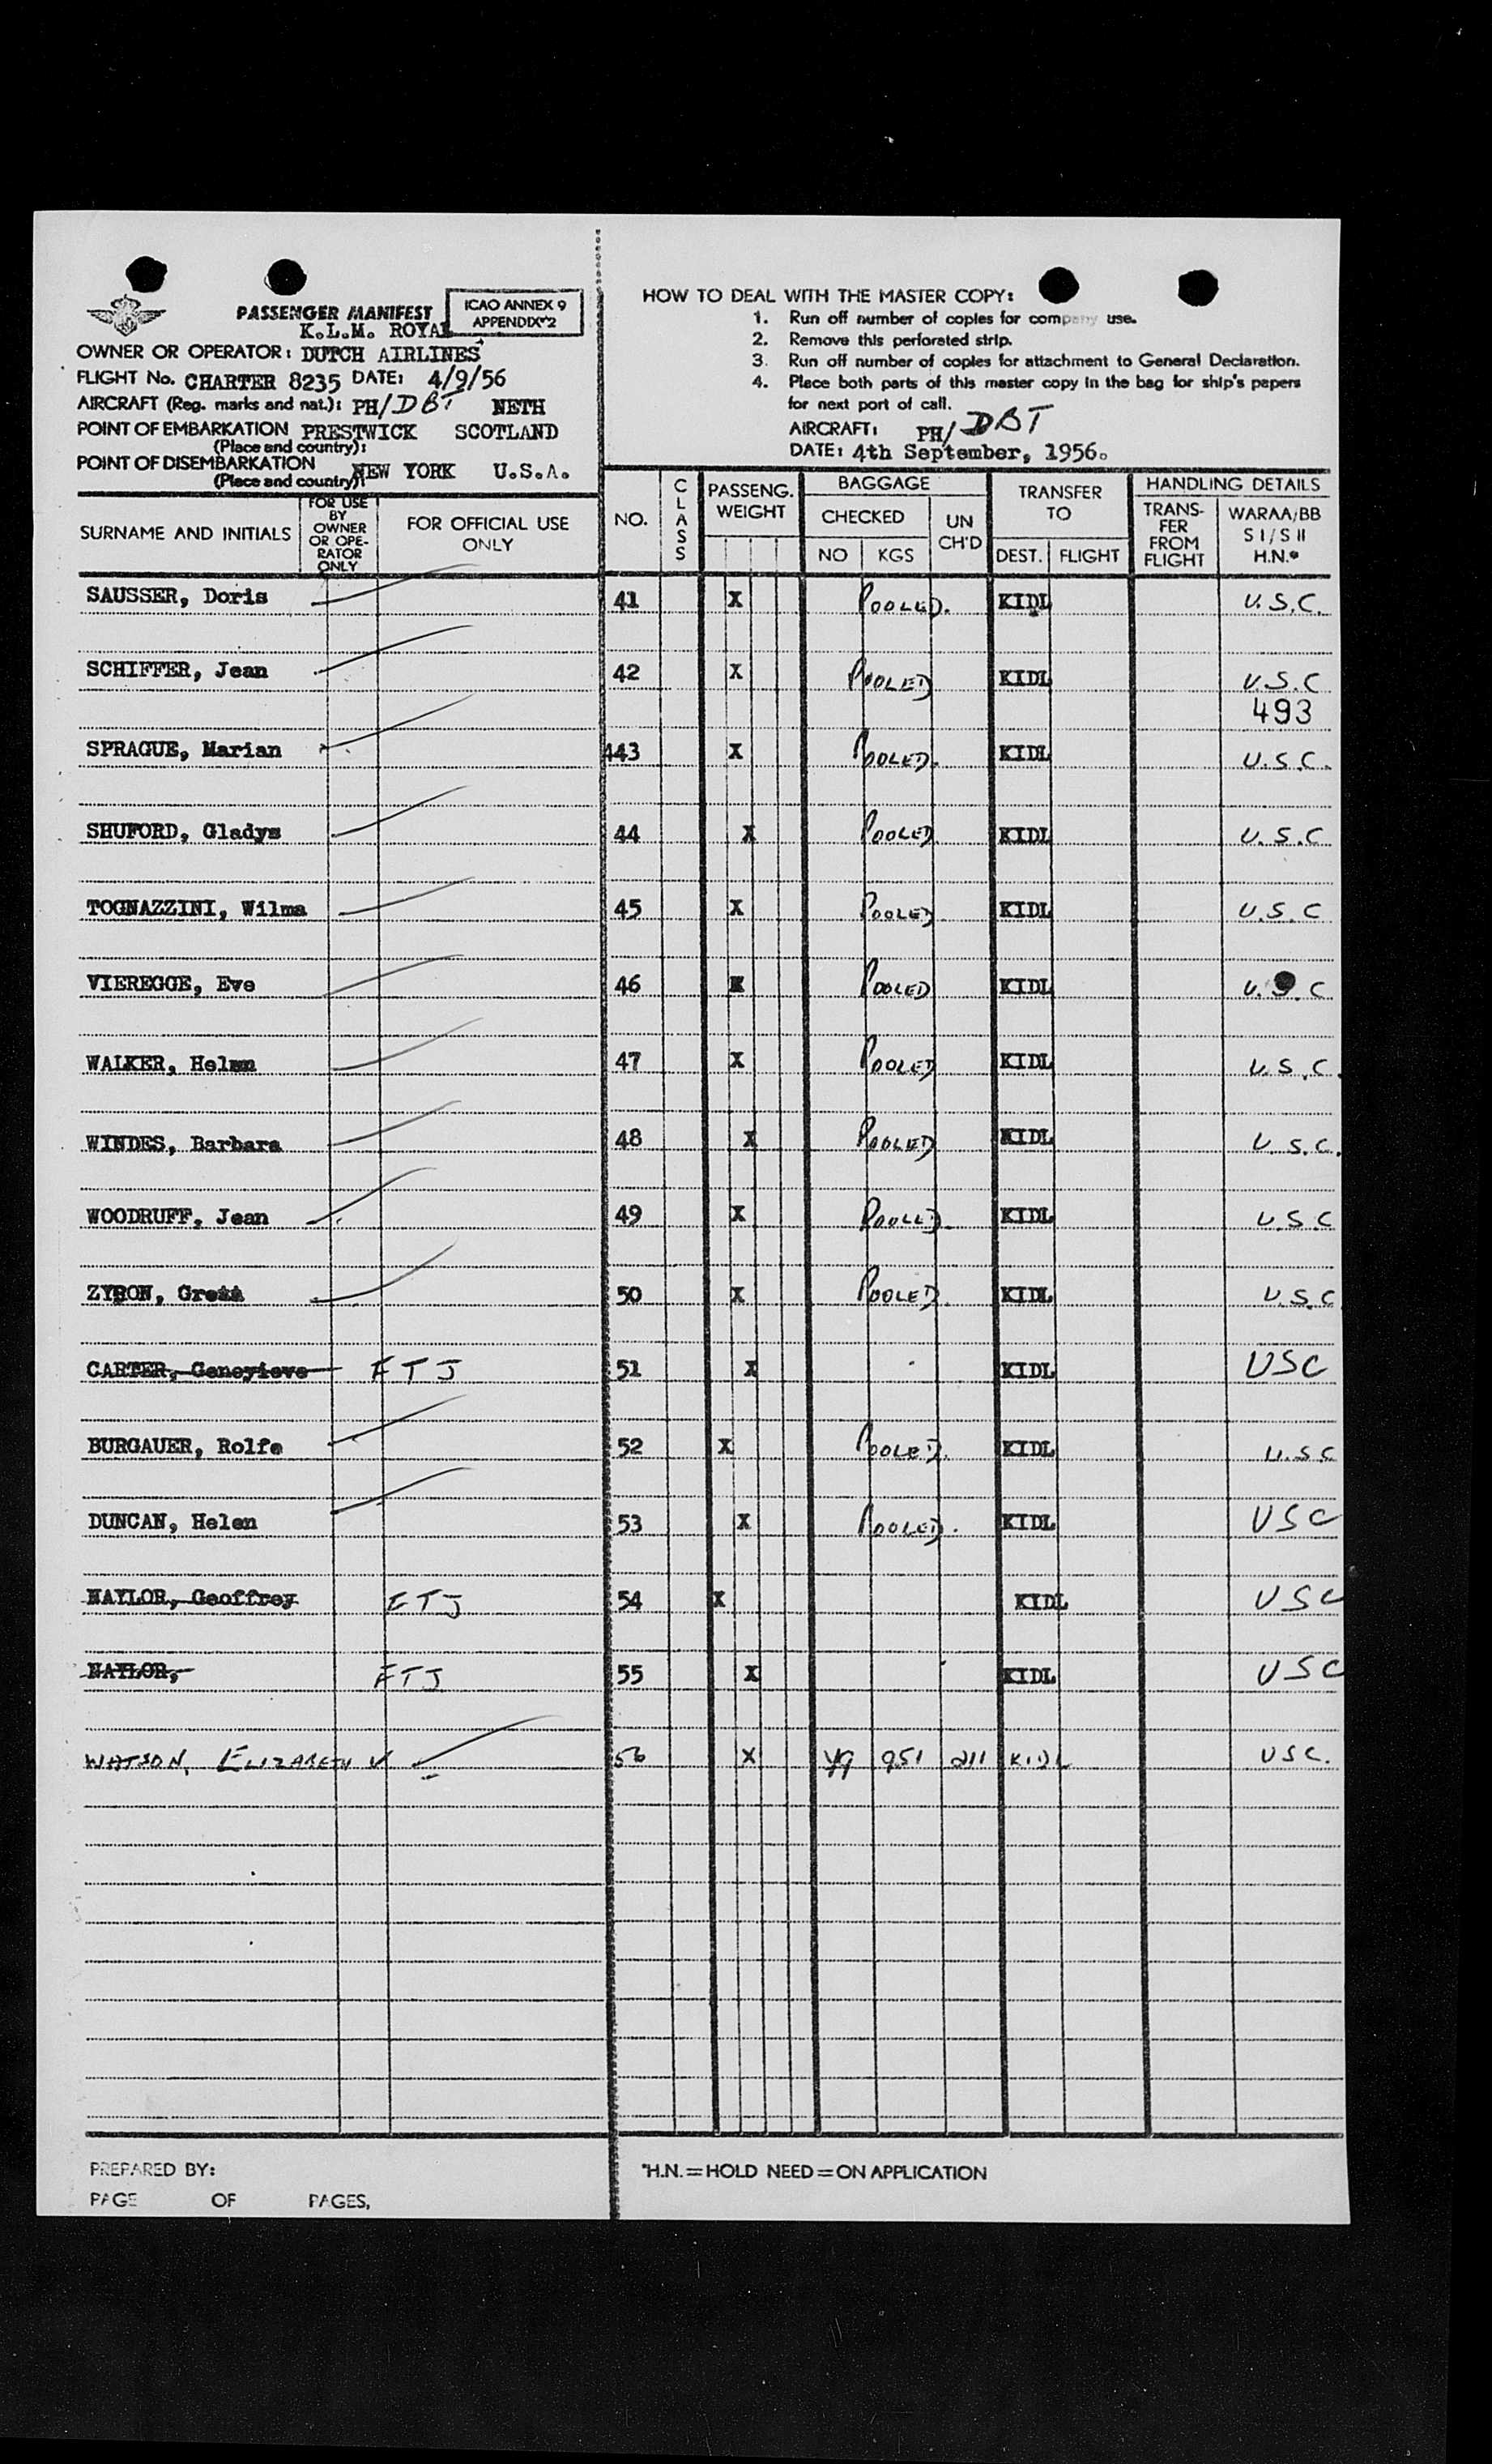 PASSENGER MANIFEST
ICAO ANNEX 9
APPENDIX 2
K.L.M. ROYAL
OWNER OR OPERATOR: DUTCH AIRLINES
FLIGHT No. CHARTER 8235 DATE: 4/9/56
AIRCRAFT (Reg. marks and nat.): PH/DBT NETH
POINT OF EMBARKATION PRESTWICK SCOTLAND
(Place and country):
POINT OF DISEMBARKATION NEW YORK U.S.A.
(Place and country)
HOW TO DEAL WITH THE MASTER COPY:
1. Run off number of copies for company use.
2. Remove this perforated strip.
3. Run off number of copies for attachment to General Declaration.
4. Place both parts of this master copy in the bag for ship's papers
for next port of call.
AIRCRAFT: PH/DBT
DATE: 4th September, 1956.
SURNAME AND INITIALS
FOR USE
BY
OWNER
OR OPE-
RATOR
ONLY
FOR OFFICIAL USE
ONLY
NO.
CLASS
PASSENG.
WEIGHT
BAGGAGE
CHECKED
NO KGS
UN
CH'D
TRANSFER
TO
DEST. FLIGHT
HANDLING DETAILS
TRANS-
FER
FROM
FLIGHT
WARAA/BB
S I / S II
H.N.*
SAUSSER, Doris 41 X POOLED. KIDL U.S.C.
SCHIFFER, Jean 42 X POOLED KIDL U.S.C
493
SPRAGUE, Marian 443 X POOLED. KIDL U.S.C.
SHUFORD, Gladys 44 X POOLED. KIDL U.S.C
TOGNAZZINI, Wilma 45 X POOLED KIDL U.S.C
VIEREGGE, Eve 46 X POOLED KIDL U.S.C
WALKER, Helen 47 X POOLED KIDL U.S.C.
WINDES, Barbara 48 X POOLED KIDL U.S.C.
WOODRUFF, Jean 49 X POOLED KIDL U.S.C
ZYRON, 50 X POOLED. KIDL U.S.C
CARTER, Genevieve FTJ 51 X KIDL USC
BURGAUER, Rolfe 52 X POOLED. KIDL U.S.C
DUNCAN, Helen 53 X POOLED. KIDL USC
NAYLOR, Geoffrey FTJ 54 X KIDL USC
NAYLOR, FTJ 55 X KIDL USC
WATSON, ELIZABETH V 56 X 49 951 211 KIDL USC.
PREPARED BY:
PAGE OF PAGES,
*H.N.=HOLD NEED=ON APPLICATION